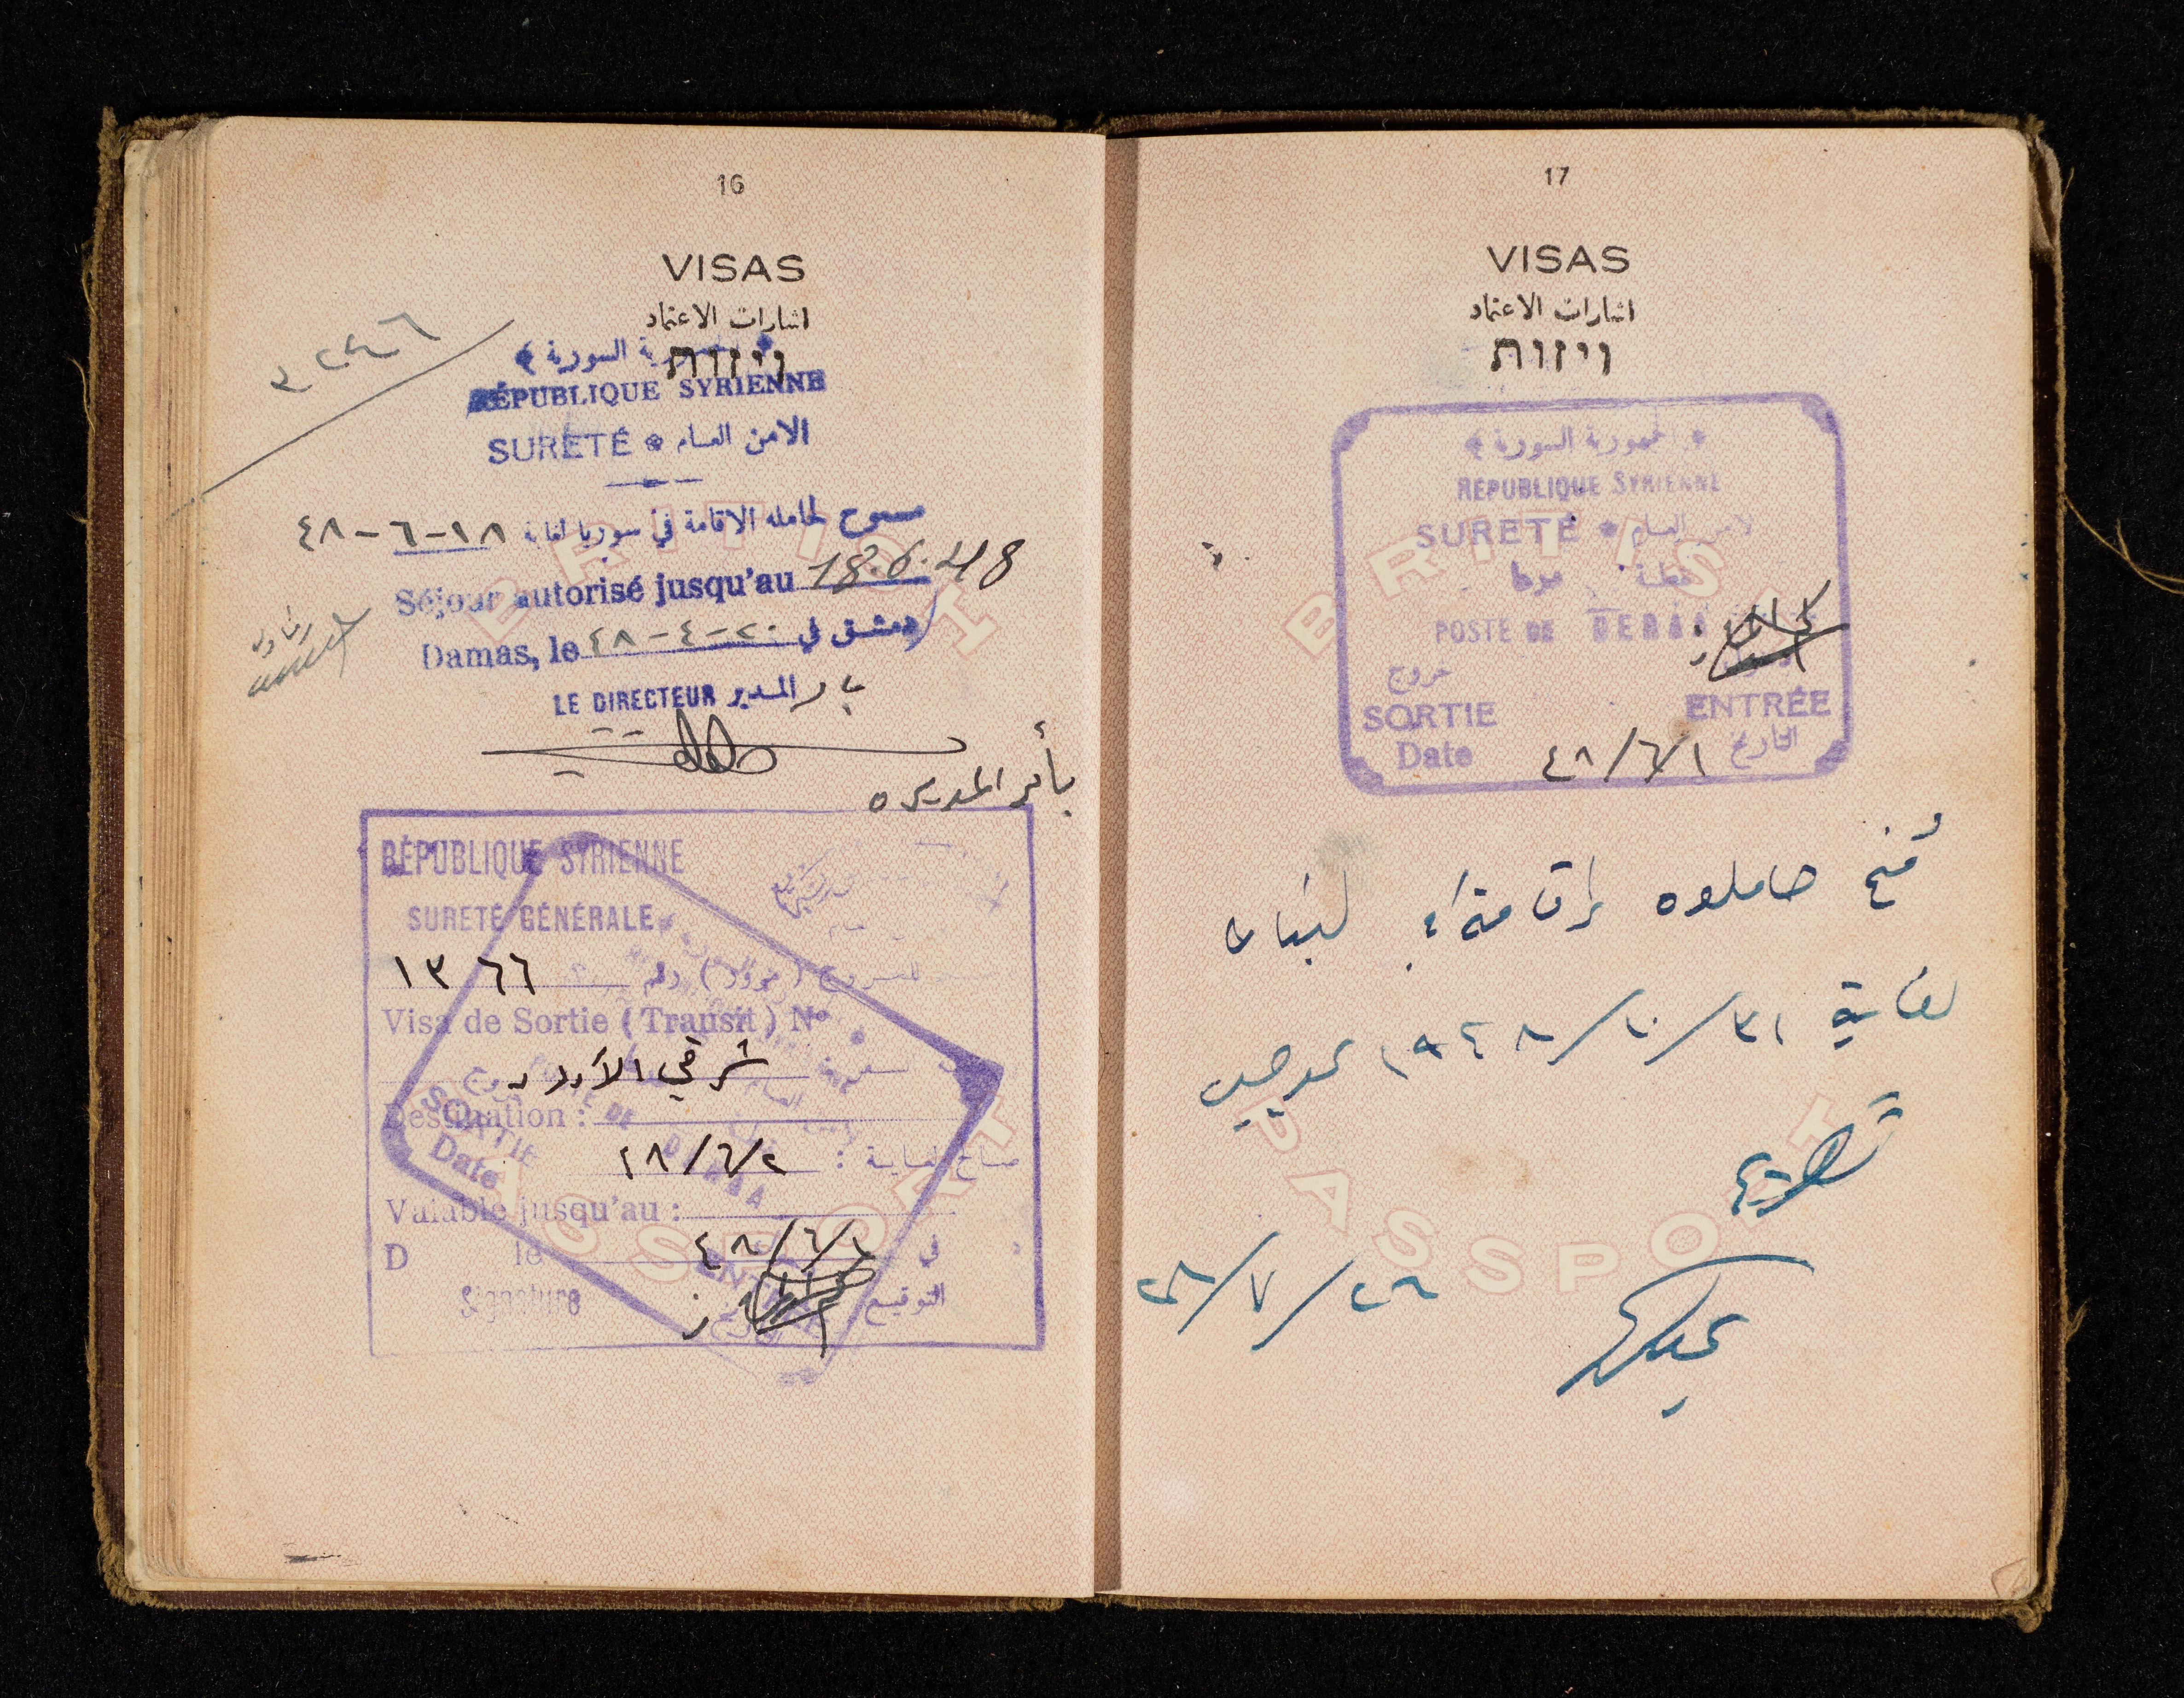 16
VISAS
اشارات الاعتماد
ויזות
الجمهورية السورية
RÉPUBLIQUE SYRIENNE
SURETÉ الامن العام
مسموح لحامله الاقامة في سوريا لغاية ١٨-٦-٤٨
Séjour autorisé jusqu'au 18.6.48
Damas, le ٢٠-٤-٤٨ دمشق في
LE DIRECTEUR المدير
RÉPUBLIQUE SYRIENNE
SURETÉ GÉNÉRALE
١٣٦٦ رقم
Visa de Sortie (Transit) No
شرقي الأردن
Destination :
٤٨/٦/٢
Valable jusqu'au :
D le ٤٨/٦/١ في
Signature التوقيع
SORTIE
Date
POSTE DE DERAA
BRITISH
PASSPORT
17
VISAS
اشارات الاعتماد
ויזות
الجمهورية السورية
RÉPUBLIQUE SYRIENNE
SURETÉ الامن العام
POSTE DE DERAA
خروج
SORTIE ENTRÉE
Date ٤٨/٦/١ التاريخ
BRITISH
تمنح حاملوه إقامة لبنان
لغاية ٣١/١٠/١٩٤٨
٤٨/٧/٢٦
PASSPORT